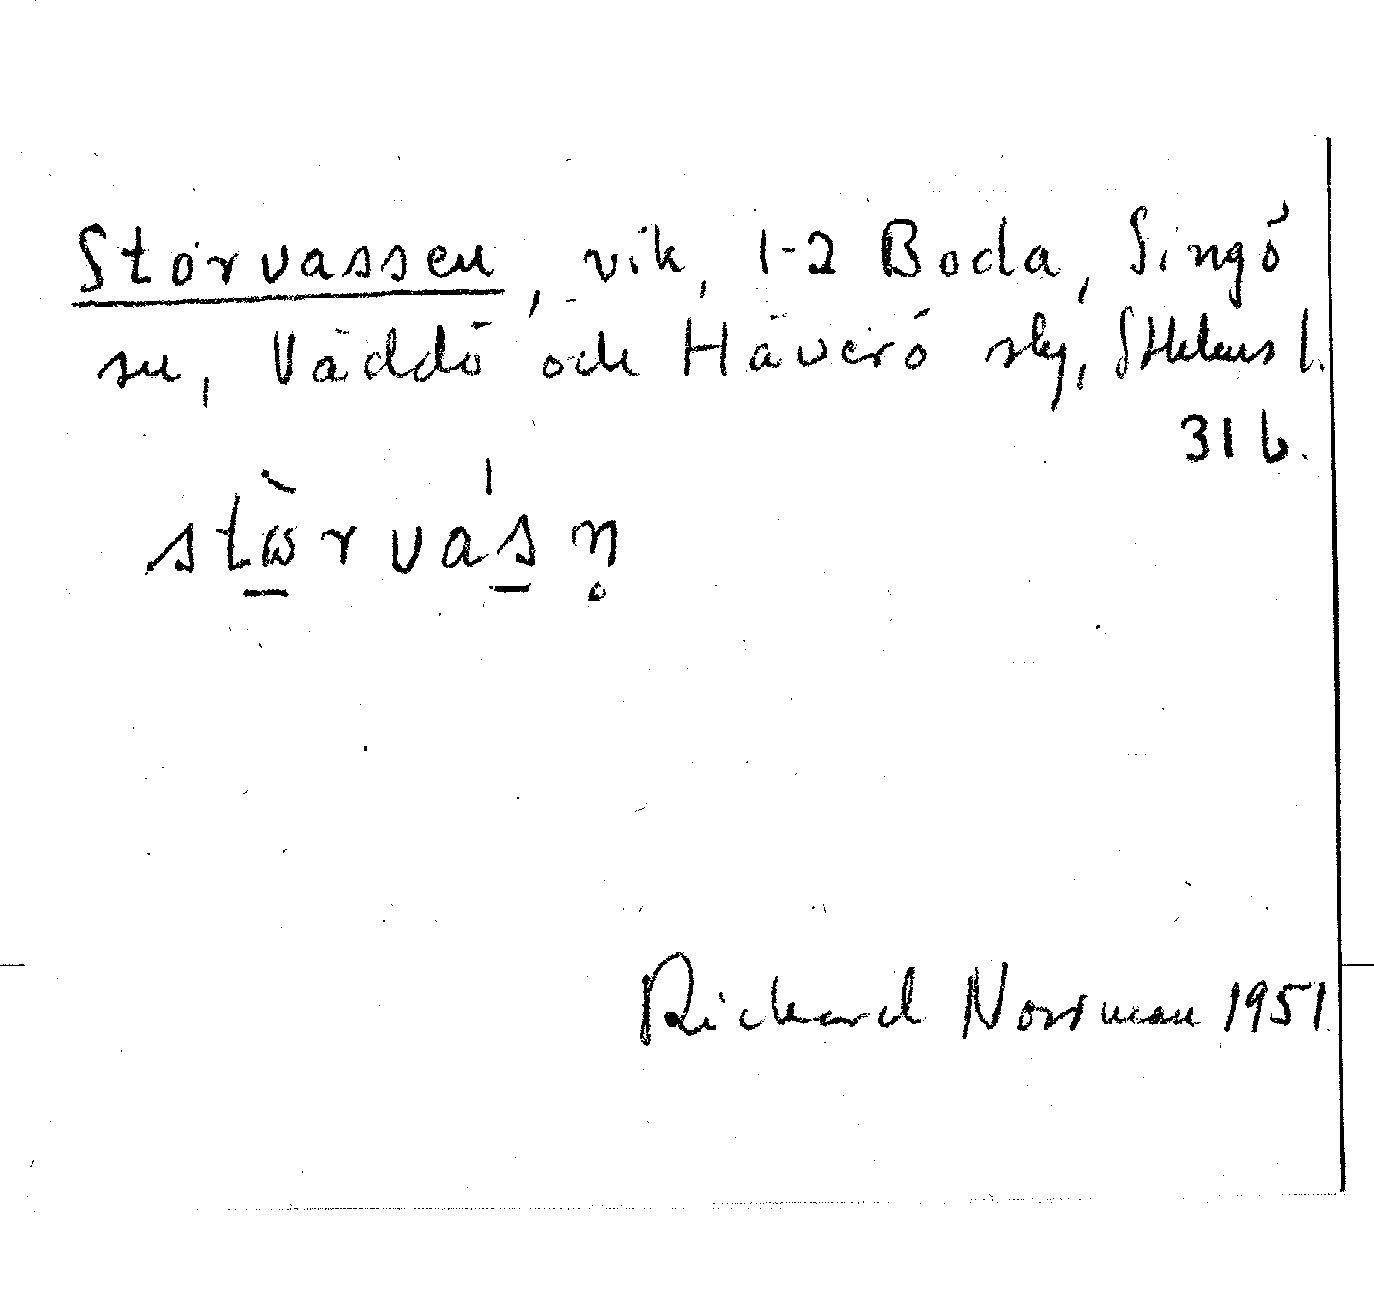 Storvassen, vik, 1-2 Boda, Singö
sn, Väddö och Häverö skg, Sthlms l.
31 b.
Richard Norrman 1951